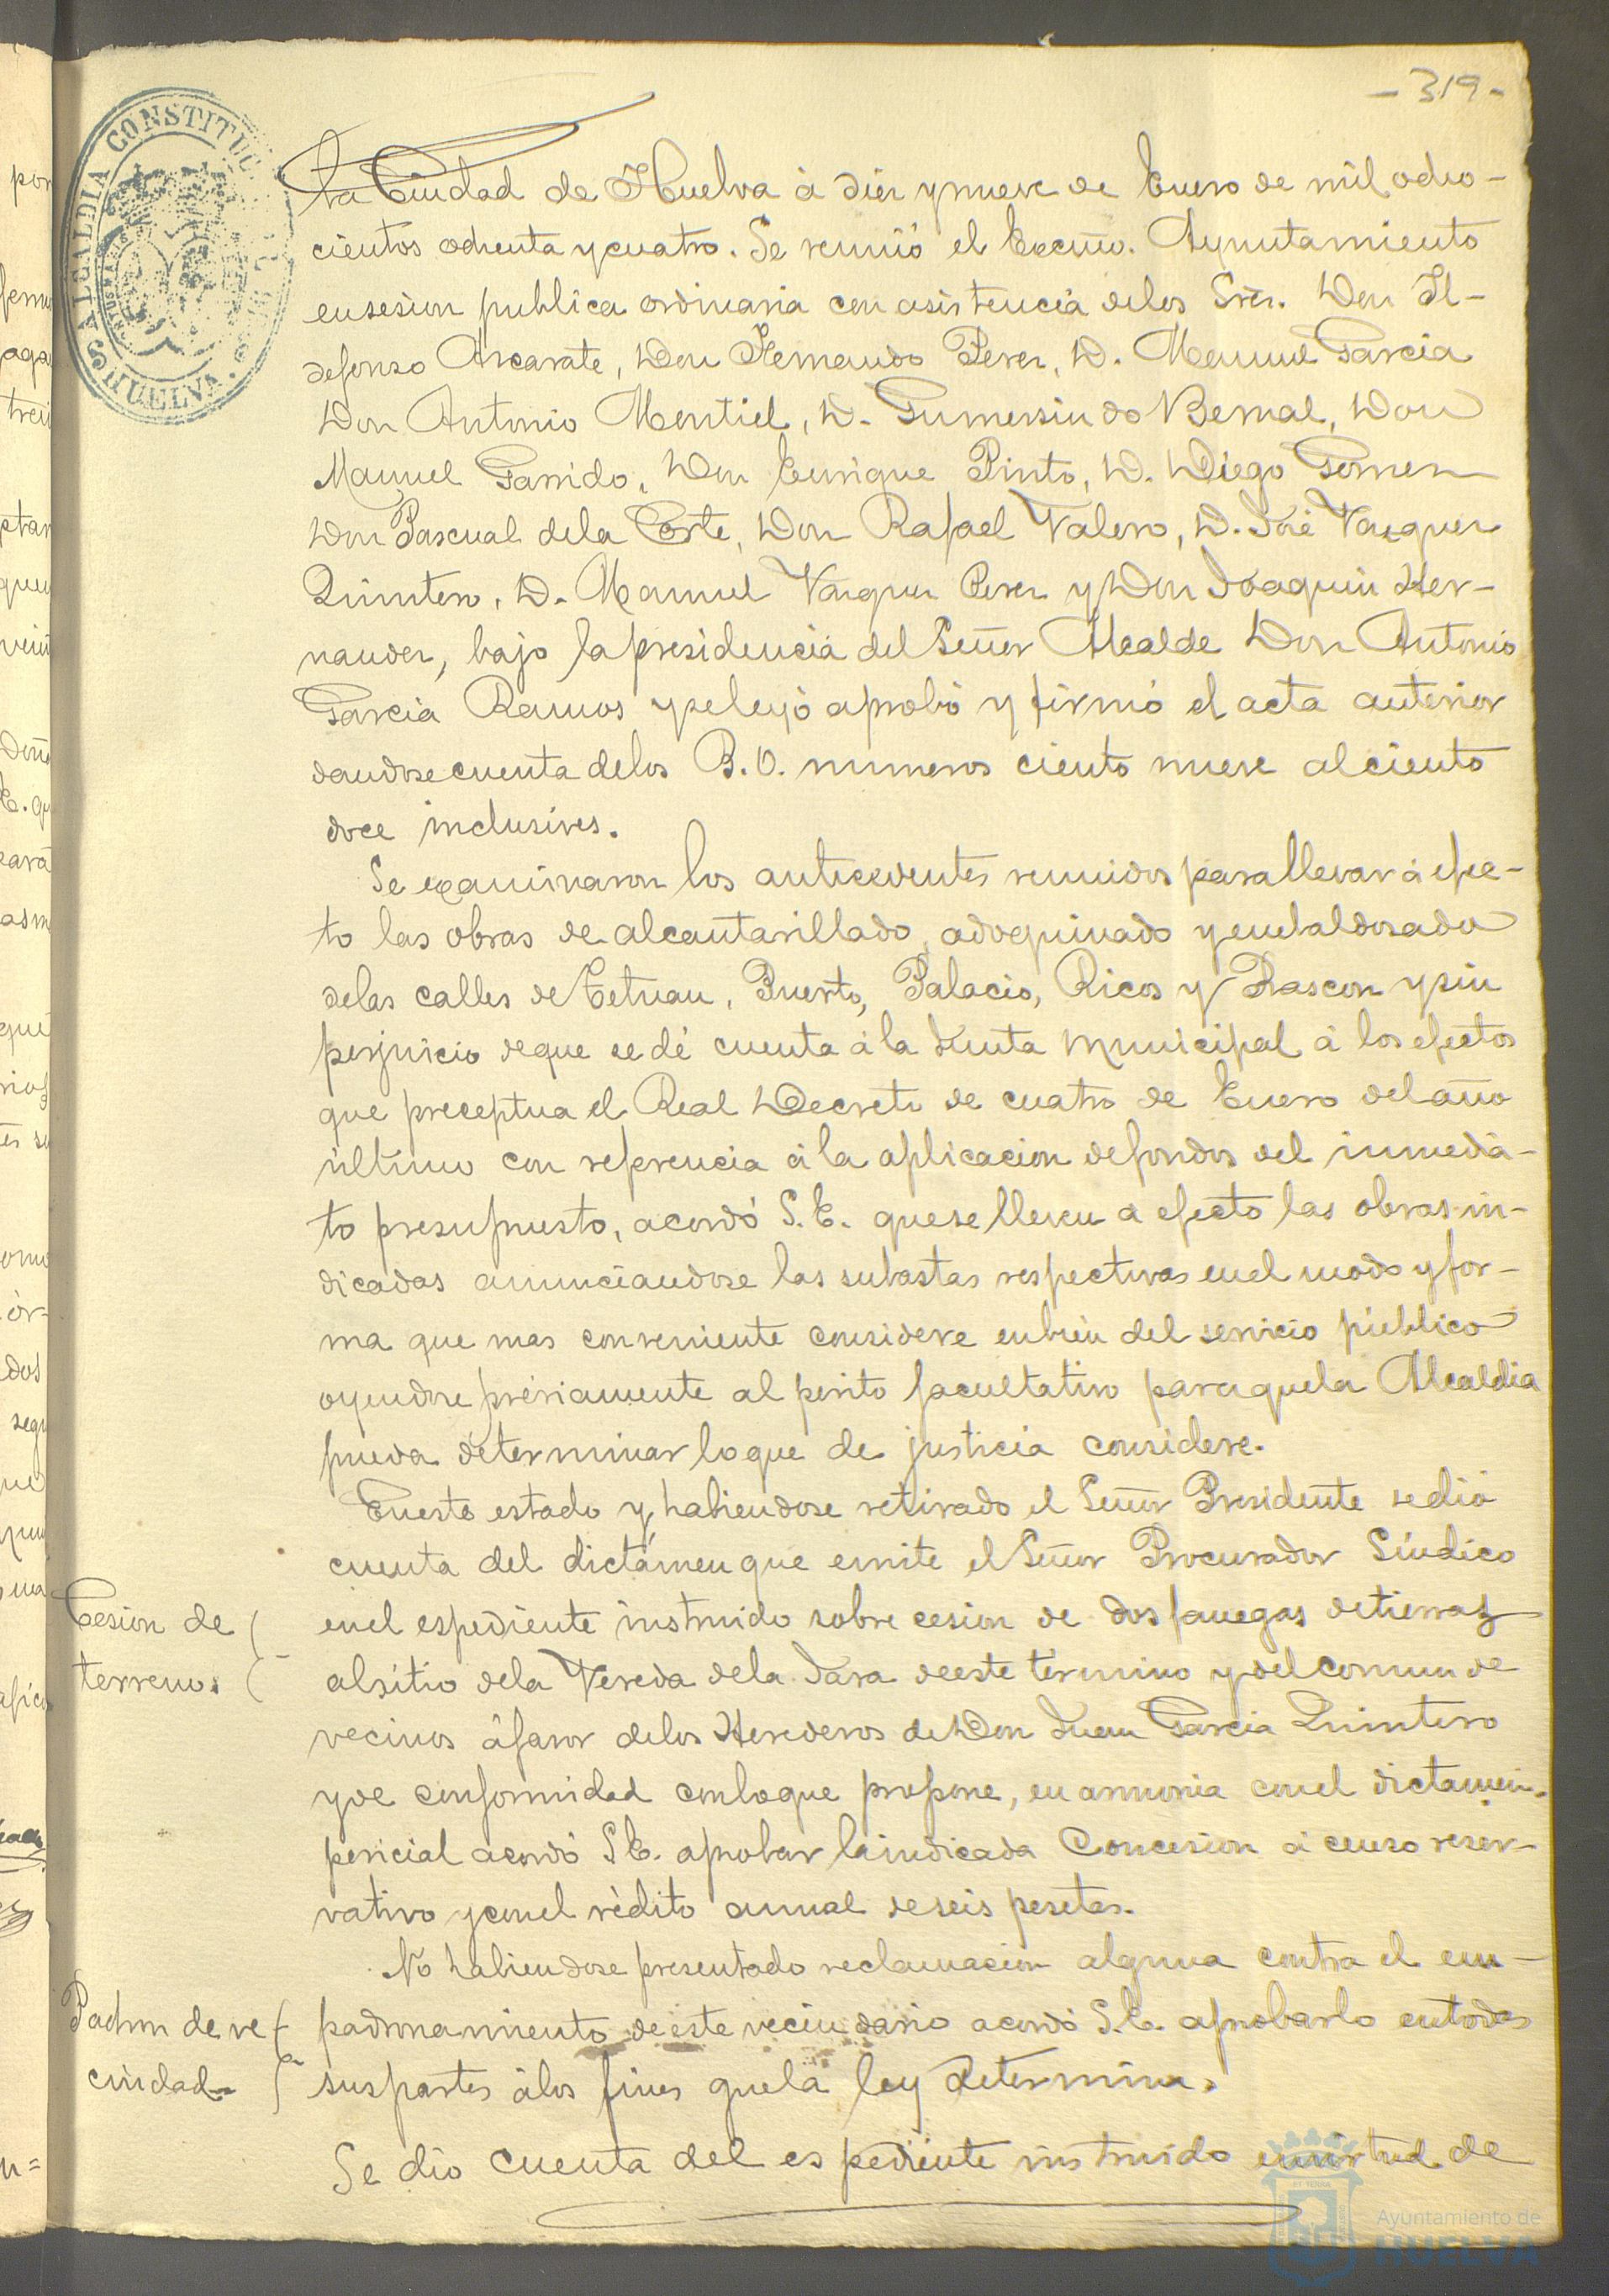 - 319 -
ALCALDIA CONSTITUC
HUELVA.
La Ciudad de Huelva à diez y nueve de Enero de mil ocho-
cientos ochenta y cuatro. Se reunió el Excmo. Ayuntamiento
en sesion publica ordinaria con asistencia de los Sres. Don Il-
defonso Ascarate, Don Fernando Perez, D. Manuel Garcia
Don Antonio Montiel, D. Gumersindo Bernal, Don
Manuel Garrido, Don Enrique Pinto, D. Diego Gomez
Don Pascual de la Corte, Don Rafael Valero, D. José Vazquez
Quintero, D. Manuel Vazquez Perez y Don Joaquin Her-
nandez, bajo la presidencia del Señor Alcalde Don Antonio
Garcia Ramos y se leyó aprobó y firmó el acta anterior
dandose cuenta de los B. O. numeros ciento nueve al ciento
doce inclusives.
Se examinaron los antecedentes reunidos para llevar á efec-
to las obras de alcantarillado, adoquinado y enchaldosado
de las calles de Tetuan, Puerto, Palacio, Ricos y Rascon y sin
perjuicio de que se dé cuenta á la Junta municipal á los efectos
que preceptua el Real Decreto de cuatro de Enero del año
último con referencia á la aplicacion de fondos del inmedia-
to presupuesto, acordó S. E. que se lleven a efecto las obras in-
dicadas anunciandose las subastas respectivas en el modo y for-
ma que mas conveniente considere en bien del servicio público
oyendose préviamente al perito facultativo para que la Alcaldia
pueda determinar lo que de justicia considere.
En este estado y habiendose retirado el Señor Presidente se dió
cuenta del dictámen que emite el Señor Procurador Síndico
Cesion de
terrenos
en el espediente instruido sobre cesion de dos fanegas de tierras
al sitio de la Vereda de la Jara de este termino y del comun de
vecinos á favor de los Herederos de Don Juan Garcia Quintero
y de conformidad con lo que propone, en armonia con el dictamen
pericial acordó S. E. aprobar la indicada Concesion á censo reser-
vativo y con el rédito anual de seis pesetas.
No habiendose presentado reclamacion alguna contra el em-
Padron de ve
cindad
padronamiento de este vecindario acordó S. E. aprobarlo en todas
sus partes á los fines que la ley determina.
Se dio cuenta del espediente instruido en virtud de
Ayuntamiento de
HUELVA